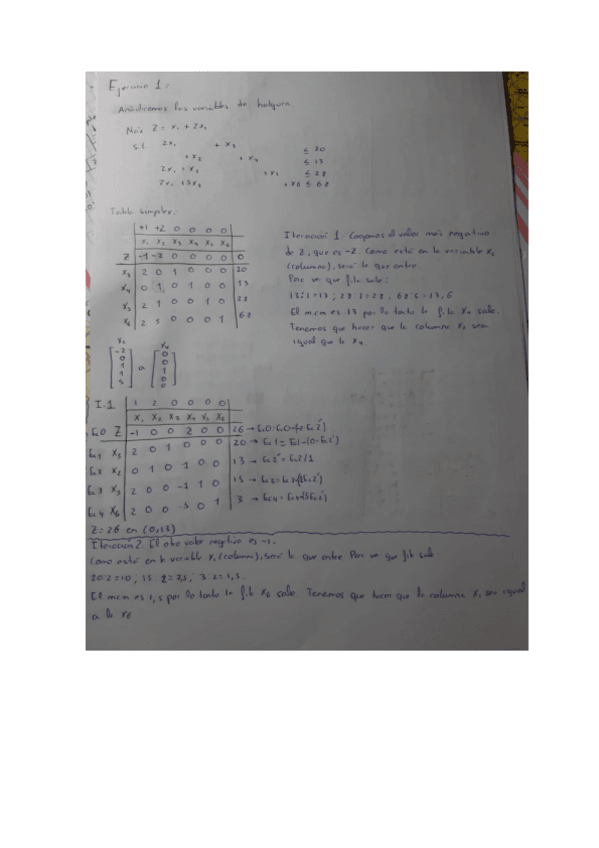 Ejercicio 1:
Añadiremos las variables de holgura.
Max Z = x₁ + 2x₂
s.t. 2x₁ + x₃ ≤ 20
+ x₂ + x₄ ≤ 13
2x₁ + x₂ + x₅ ≤ 28
2x₁ + 5x₂ + x₆ ≤ 68
Tabla simplex:
+1 +2 0 0 0 0
x₁ x₂ x₃ x₄ x₅ x₆
Z -1 -2 0 0 0 0 0
x₃ 2 0 1 0 0 0 20
x₄ 0 1 0 1 0 0 13
x₅ 2 1 0 0 1 0 28
x₆ 2 5 0 0 0 1 68
Iteración 1. Cogemos el valor más negativo
de Z, que es -2. Como está en la variable x₂
(columna), será la que entre
Para ver que fila sale:
13:1=13; 28:1=28, 68:5=13,6
El mcm es 13 por lo tanto la fila x₄ sale.
Tenemos que hacer que la columna x₂ sea
igual que la x₄
x₂ x₄
-2 0
0 0
1 a 1
1 0
5 0
I-1 1 2 0 0 0 0
x₁ x₂ x₃ x₄ x₅ x₆
Ec0 Z -1 0 0 2 0 0 26 → Ec0=Ec0-(-2Ec2')
Ec1 x₃ 2 0 1 0 0 0 20 → Ec1=Ec1-(0·Ec2')
Ec2 x₂ 0 1 0 1 0 0 13 → Ec2'=Ec2/1
Ec3 x₅ 2 0 0 -1 1 0 15 → Ec3=Ec3-(1Ec2')
Ec4 x₆ 2 0 0 -5 0 1 3 → Ec4=Ec4-(5Ec2')
Z=26 en (0,13)
Iteración 2. El otro valor negativo es -1.
Como está en la variable x₁ (columna), será la que entre. Para ver que fila sale
20:2=10; 15:2=7,5; 3:2=1,5.
El mcm es 1,5 por lo tanto la fila x₆ sale. Tenemos que hacer que la columna x₁ sea igual
a la x₆